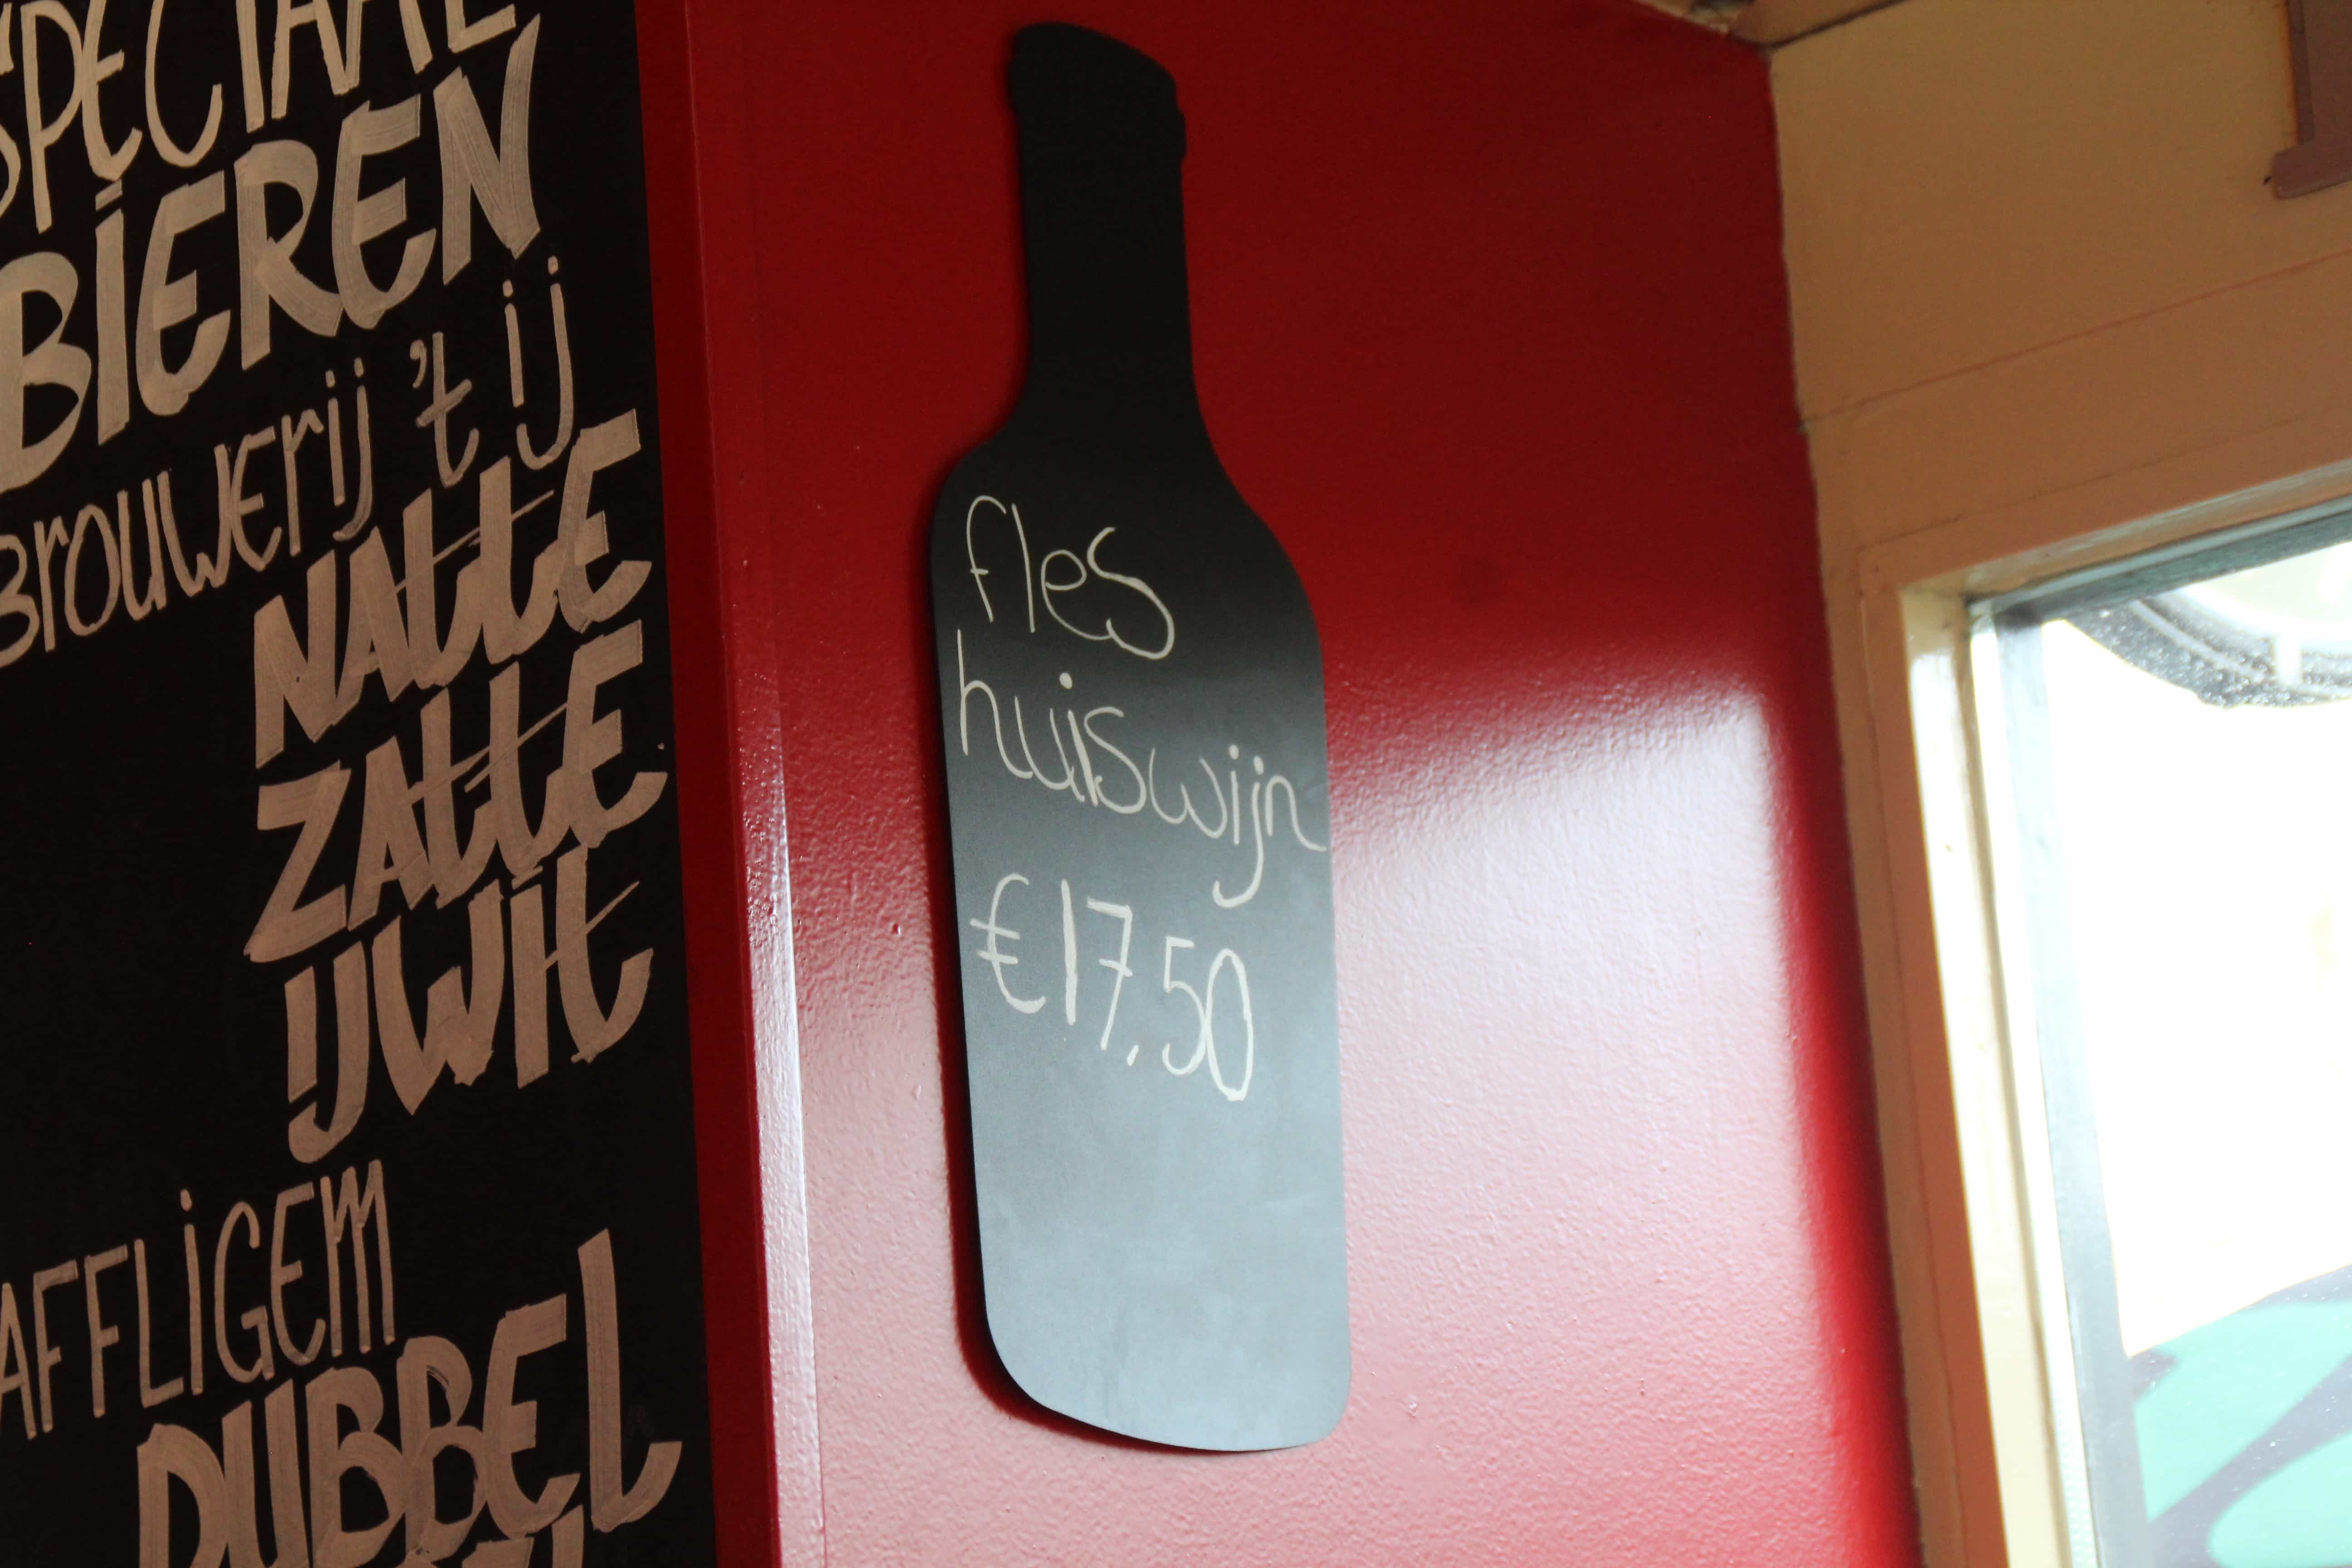 SPECIAAL
BIEREN
BROUWERIJ 't ij
NATTE
ZATTE
IJWIT
AFFLIGEM
DUBBEL
fles
huiswijn
€17,50